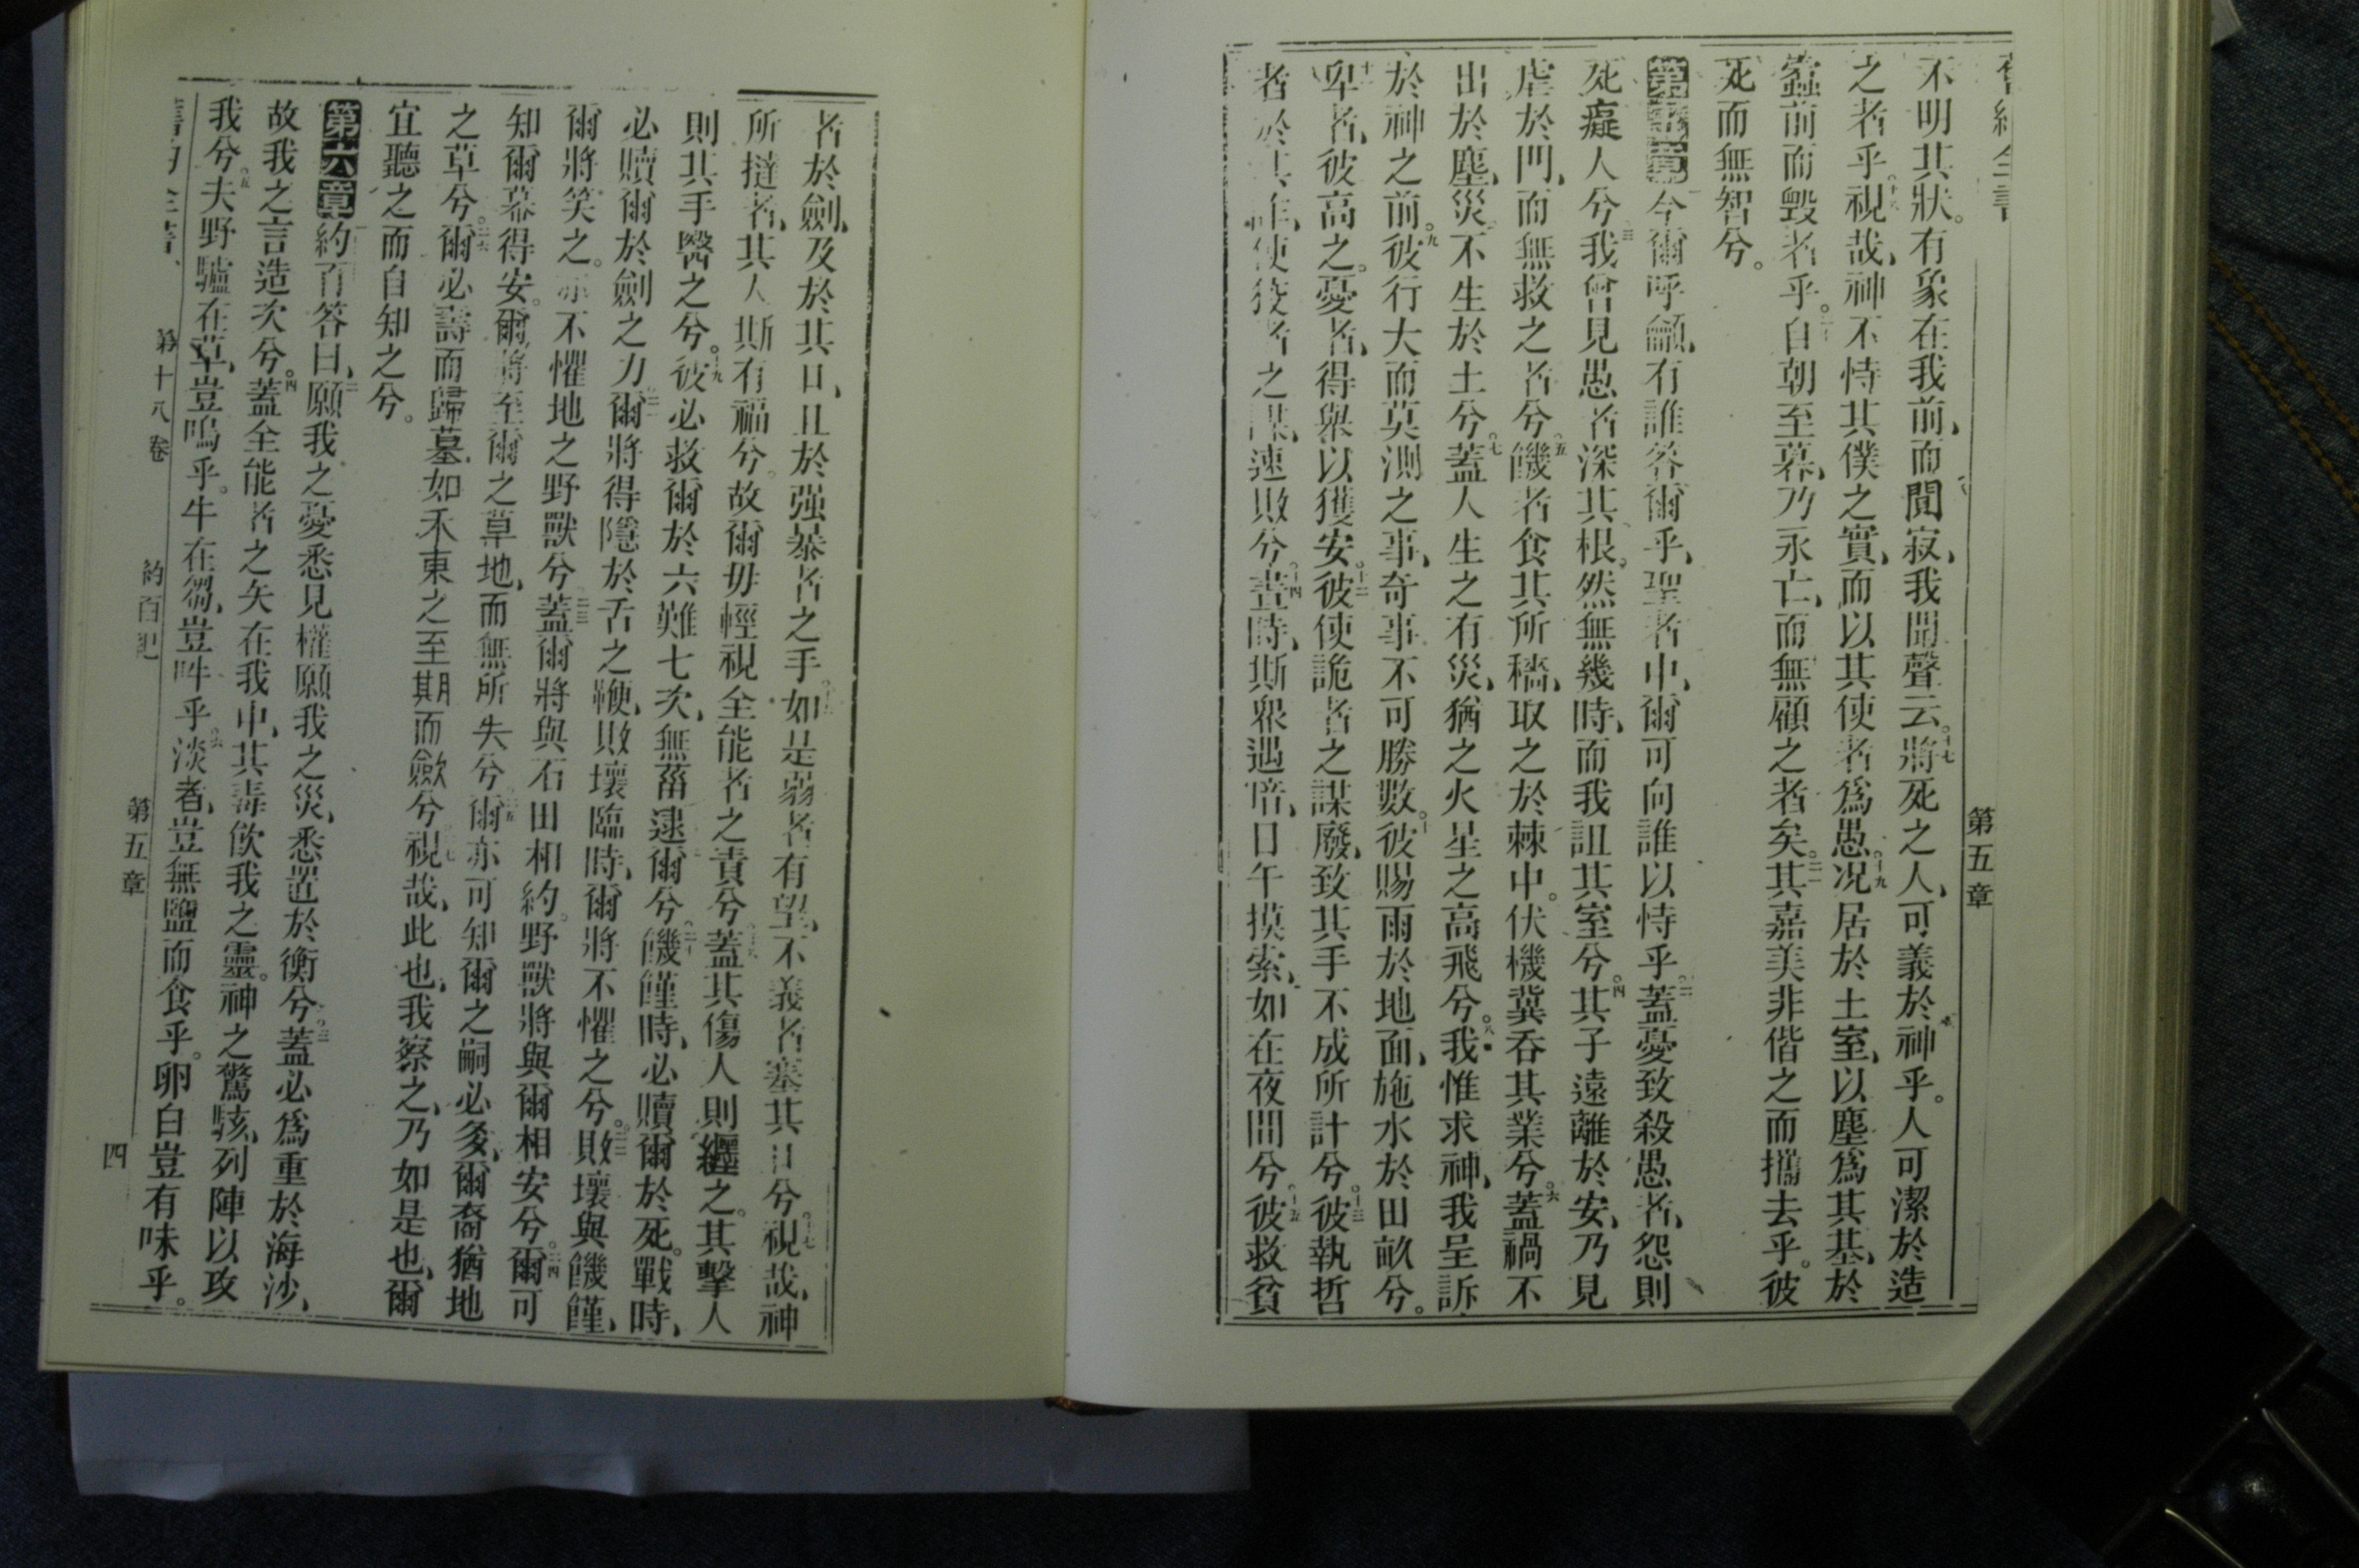 第五章
不明其狀。有象在我前、而聞寂、我聞聲云。十七將死之人、可義於神乎。人可潔於造
之者乎。十八視哉、神不恃其僕之實、而以其使者爲愚。十九况居於土室、以塵爲其基、於
蠧前而毀者乎。二十自朝至暮、乃永亡、而無顧之者矣。二一其嘉美非偕之而攜去乎。彼
死而無智兮。
第五章今爾呼籲、有誰答爾乎、聖者中、爾可向誰以恃乎。二蓋憂致殺愚者、怨則
死癡人兮。三我曾見愚者深其根、然無幾時、而我詛其室兮。四其子遠離於安、乃見
虐於門、而無救之者兮。五饑者食其所穡、取之於棘中。伏機冀吞其業兮。六蓋禍不
出於塵、災不生於土兮。七蓋人生之有災、猶之火星之高飛兮。八我惟求神、我呈訴
於神之前。九彼行大而莫測之事、奇事不可勝數。十彼賜雨於地面、施水於田畝兮。
十一卑者、彼高之。憂者、得舉以獲安。十二彼使詭者之謀廢、致其手不成所計兮。十三彼執哲
者於其 使狡者之謀、速敗兮。十四晝時、斯衆遇暗、日午摸索、如在夜間兮。十五彼救貧
者於劍、及於其口、且於强暴者之手。十六如是弱者有望、不義者塞其口兮。十七視哉、神
所撻者、其人斯有福兮。故爾毋輕視全能者之責兮。十八蓋其傷人則纏之。其擊人
則其手醫之兮。十九彼必救爾於六難七次、無菑逮爾兮。二十饑饉時、必贖爾於死。戰時、
必贖爾於劍之力。二一爾將得隱於舌之鞭、敗壞臨時、爾將不懼之兮。二二敗壞與饑饉、
爾將笑之。亦不懼地之野獸兮。二三蓋爾將與石田相約。野獸將與爾相安兮。二四爾可
知爾幕得安。爾將至爾之草地、而無所失兮。二五爾亦可知爾之嗣必多、爾裔猶地
之草兮。二六爾必壽而歸墓、如禾東之至期而歛兮。二七視哉、此也、我察之、乃如是也、爾
宜聽之而自知之兮。
第六章約百答曰、二願我之憂悉見權願我之災、悉置於衡兮。三蓋必爲重於海沙、
故我之言造次兮。四蓋全能者之矢在我中、其毒飲我之靈。神之驚駭、列陣以攻
我兮。五夫野驢在草、豈嗚乎。牛在芻、豈吽乎。六淡者、豈無鹽而食乎。卵白豈有味乎。
第十八卷 約百記 第五章 四